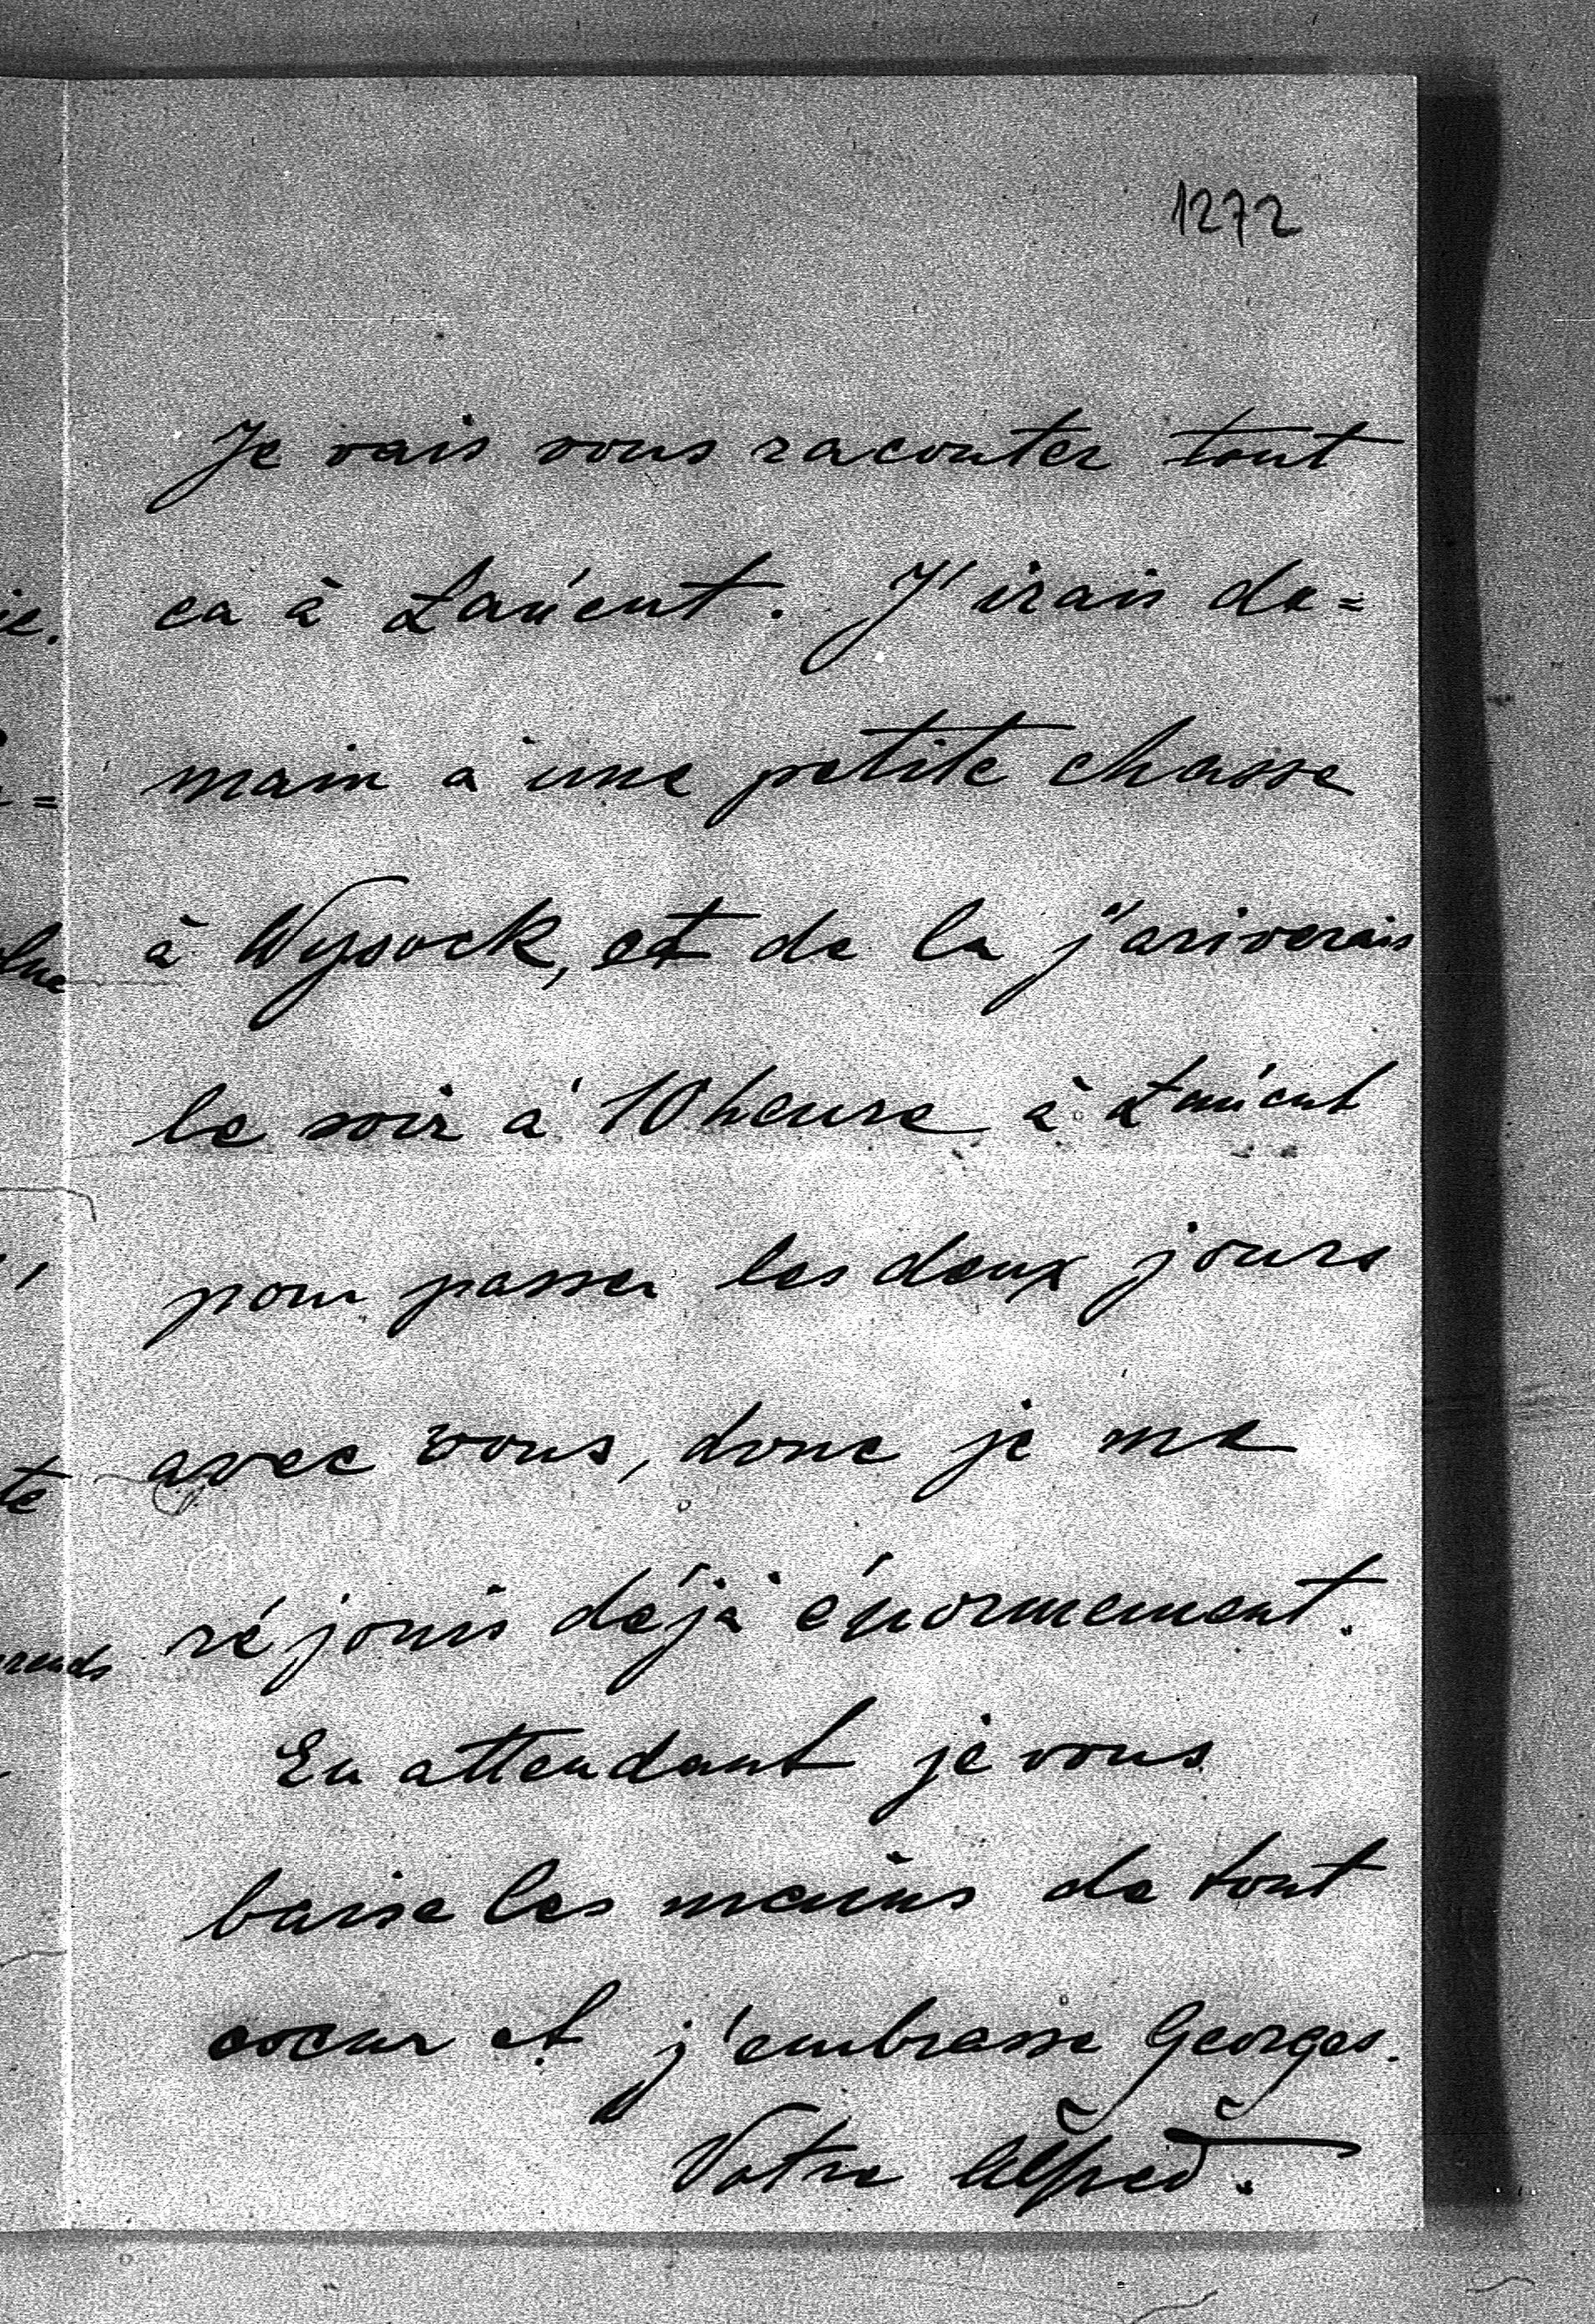 1272
Je vais vous raconter tout
ca à Łańcut. J'irais de=
main a une petite chasse
à Wysock, et de la j'ariverais
le soir a 10 heure à Łańcut
pour passer les deux jours
avec vous, donc je me
réjouis déjà énormement.
En attendant je vous
baise les mains de tout
coeur et j'embrasse Georges.
Votre Alfred.